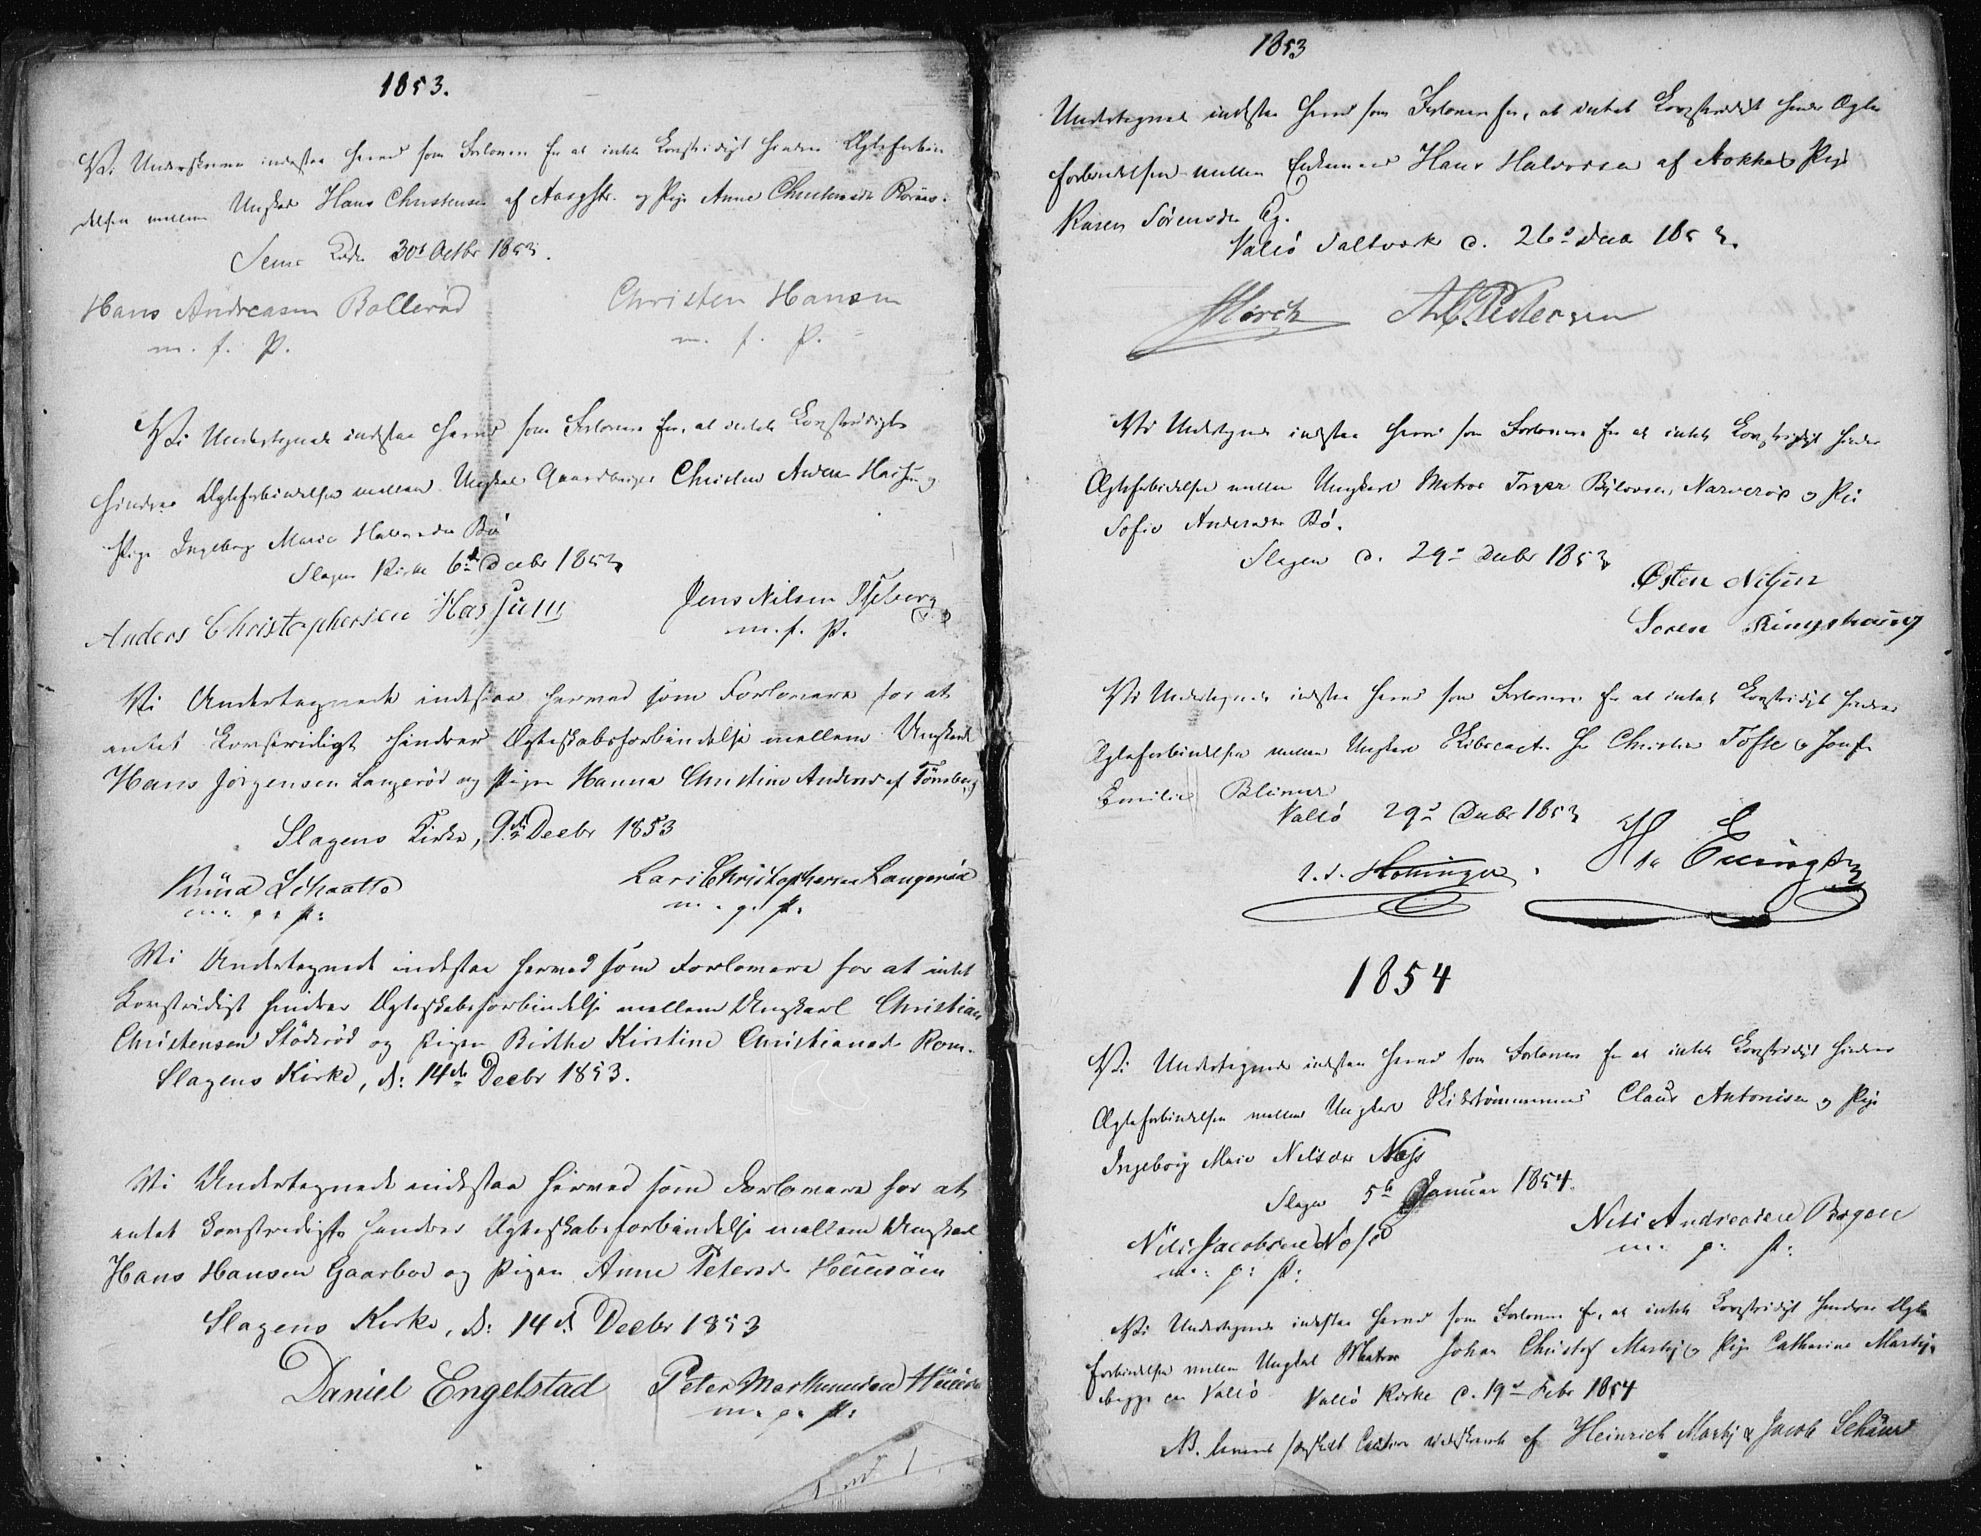 1853.
Vi Underskrevne indestaa herved som Forlovere for at intet Lovstridigt hindrer Ægteforbin
delsen mellem Ungkarl Hans Christensen af Aasgstr. og Pige Anne Christensdr
Sems Kirke 30t Octbr 1853.
Hans Andreasen Bollerød Christen Hansen
m. f. P. m. f. P.
Vi Undertegnede indestaa herved som Forlovere for, at intet Lovstridigt
hindrer Ægteforbindelsen mellem Ungkarl Gaardbruger Christen Anders Hasjum og
Pige Ingeborg Marie Halvorsdr Bø
Slagens Kirke 6te Decbr 1853
Anders Christophersen Hasjum Jens Nilsen
m. f. P.
Vi Undertegnede indestaa herved som Forlovere for at
intet Lovstridigt hindrer Ægteskabsforbindelse mellem Ungkarl
Hans Jørgensen Langerød og Pigen Hanna Christine Andersd af Tønsberg
Slagens Kirke, 9de Decbr 1853
Knud Schaatte Lars Christophersen Langerød
m: p: P: m. p. P.
Vi Undertegnede indestaa herved som Forlovere for at intet
Lovstridigt hindrer Ægteskabsforbindelse mellem Ungkarl Christian
Christensen Stødsrød og Pigen Birthe Kirstine Christiansd. Rom.
Slagens Kirke, d: 14de Decbr 1853.
Vi Undertegnede indestaa herved som Forlovere for at
intet Lovstridigt hindrer Ægteskabsforbindelse mellem Ungkarl
Hans Hansen Gaarbod og Pigen Anne Petersd.
Slagens Kirke, d: 14d. Decbr 1853
Daniel Engelstad Peter Mathiesen
m. p. P:
1853
Undertegnede indestaa herved som Forlovere for, at intet Lovstridigt hindrer Ægte
forbindelsen mellem Enkemand Hans Halvorsen af Pige
Karen Sørensdr
Valø Saltværk d. 26d Decb 1853.
A. C. Pedersen
Vi Undertegnede indestaa herved som Forlovere for at intet Lovstridigt hindrer
Ægteforbindelsen mellem Ungkarl Matros Torger Narverød og Pige
Sofie Andersdr Bø.
Slagen d. 29d Decbr 1853
Østen Nilsen
Søren Ringshaug
Vi Undertegnede indestaa herved som Forlovere for at intet Lovstridigt hindrer
Ægteforbindelsen mellem Ungkarl Skibscapt. Hr Christen Tofte og Jomfr
Emilie
Valø 29d Decbr 1853
1854
Vi Undertegnede indestaa herved som Forlovere for at intet Lovstridigt hindrer
Ægteforbindelsen mellem Ungkarl Skibstømmermand Claus Antonisen og Pige
Ingeborg Marie Nelsdr Næss
Slagen 5te Januar 1854.
Nils Jacobsen Næss Nils Andreasen Bogen
m: p: P: m: p: P:
Vi Undertegnede indestaa herved som Forlovere for, at intet Lovstridigt hindrer Ægte
forbindelsen mellem Ungkarl Matros Johan Christof og Pige Catharine
begge af Valø Valø Kirke d. 19d Febr 1854
NB. af Heinrich & Jacob